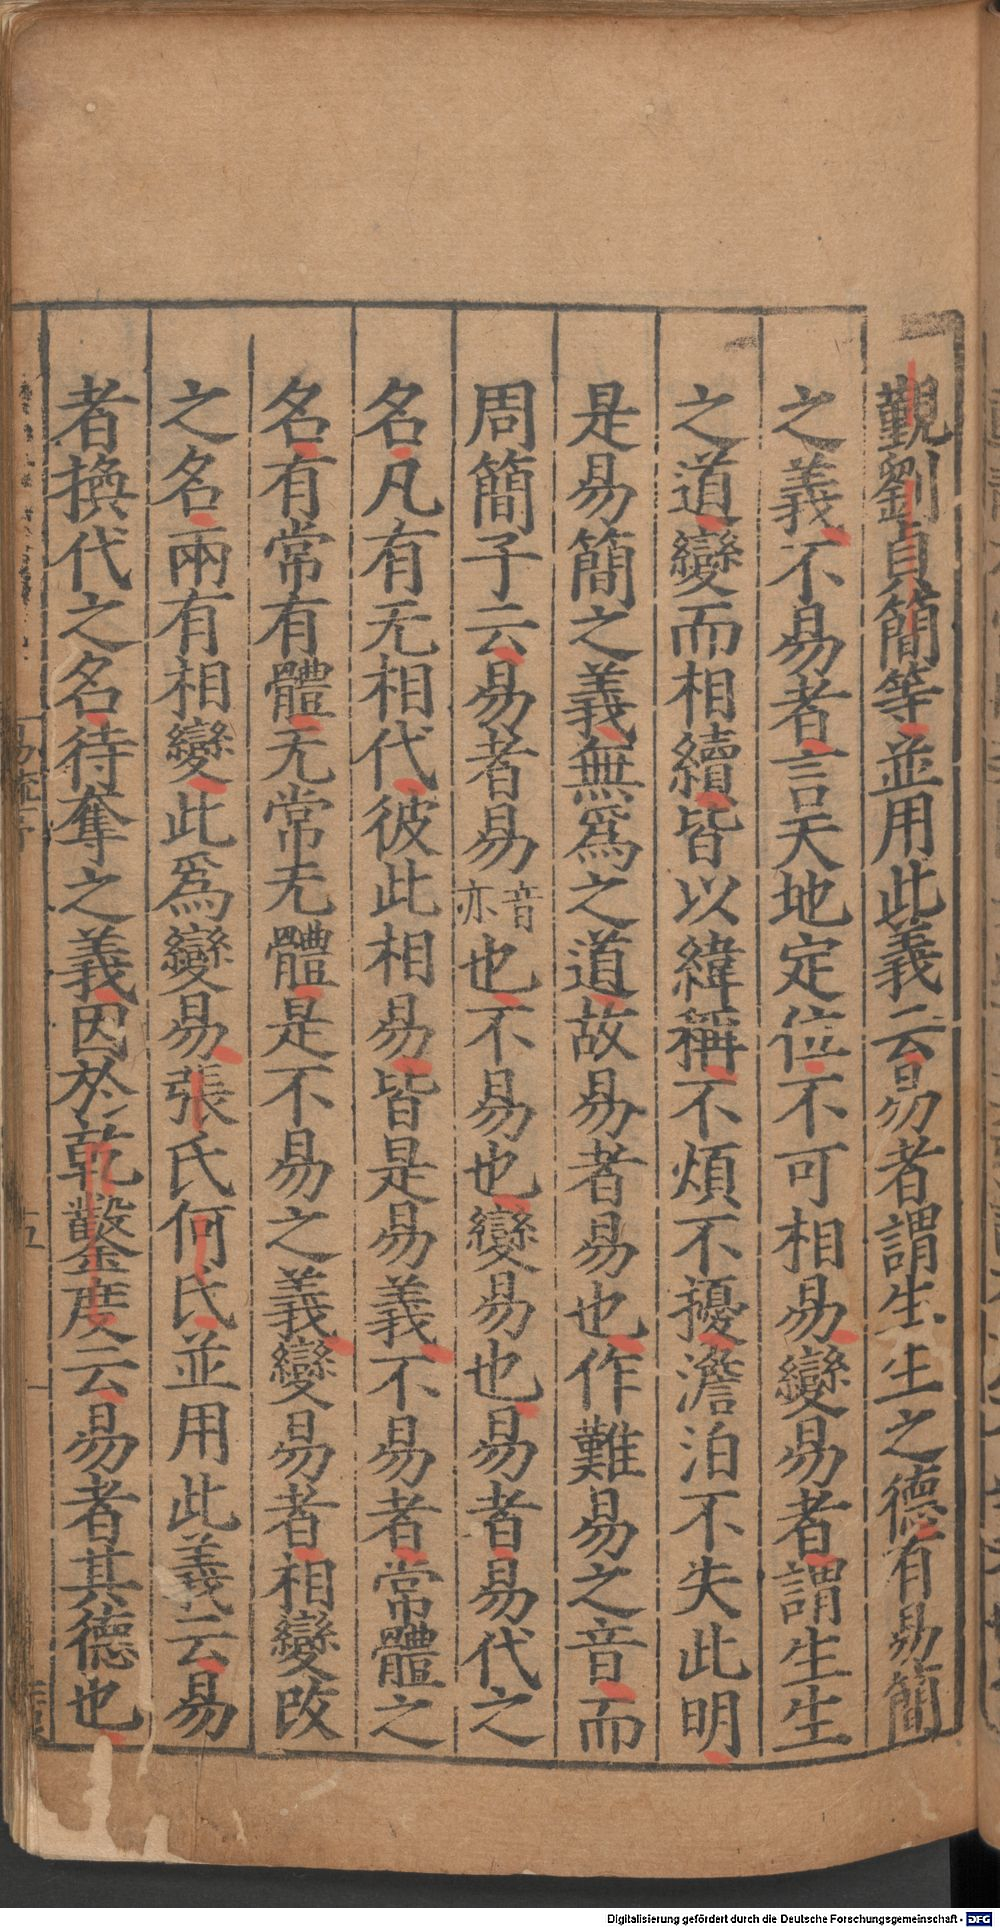 觀劉貞簡等並用此義云易者謂生生之德有易簡
之義不易者言天地定位不可相易變易者謂生生
之道變而相續皆以緯稱不煩不擾澹泊不失此明
是易簡之義無爲之道故易者易也作難易之音而
周簡子云易者易音亦也不易也變易也易者易代之
名凡有无相代彼此相易皆是易義不易者常體之
名有常有體无常无體是不易之義變易者相變改
之名兩有相變此爲變易張氏何氏並用此義云易
者換代之名待奪之義因於乾鑿度云易者其德也
易疏序
五
Digitalisierung gefördert durch die Deutsche Forschungsgemeinschaft - DFG